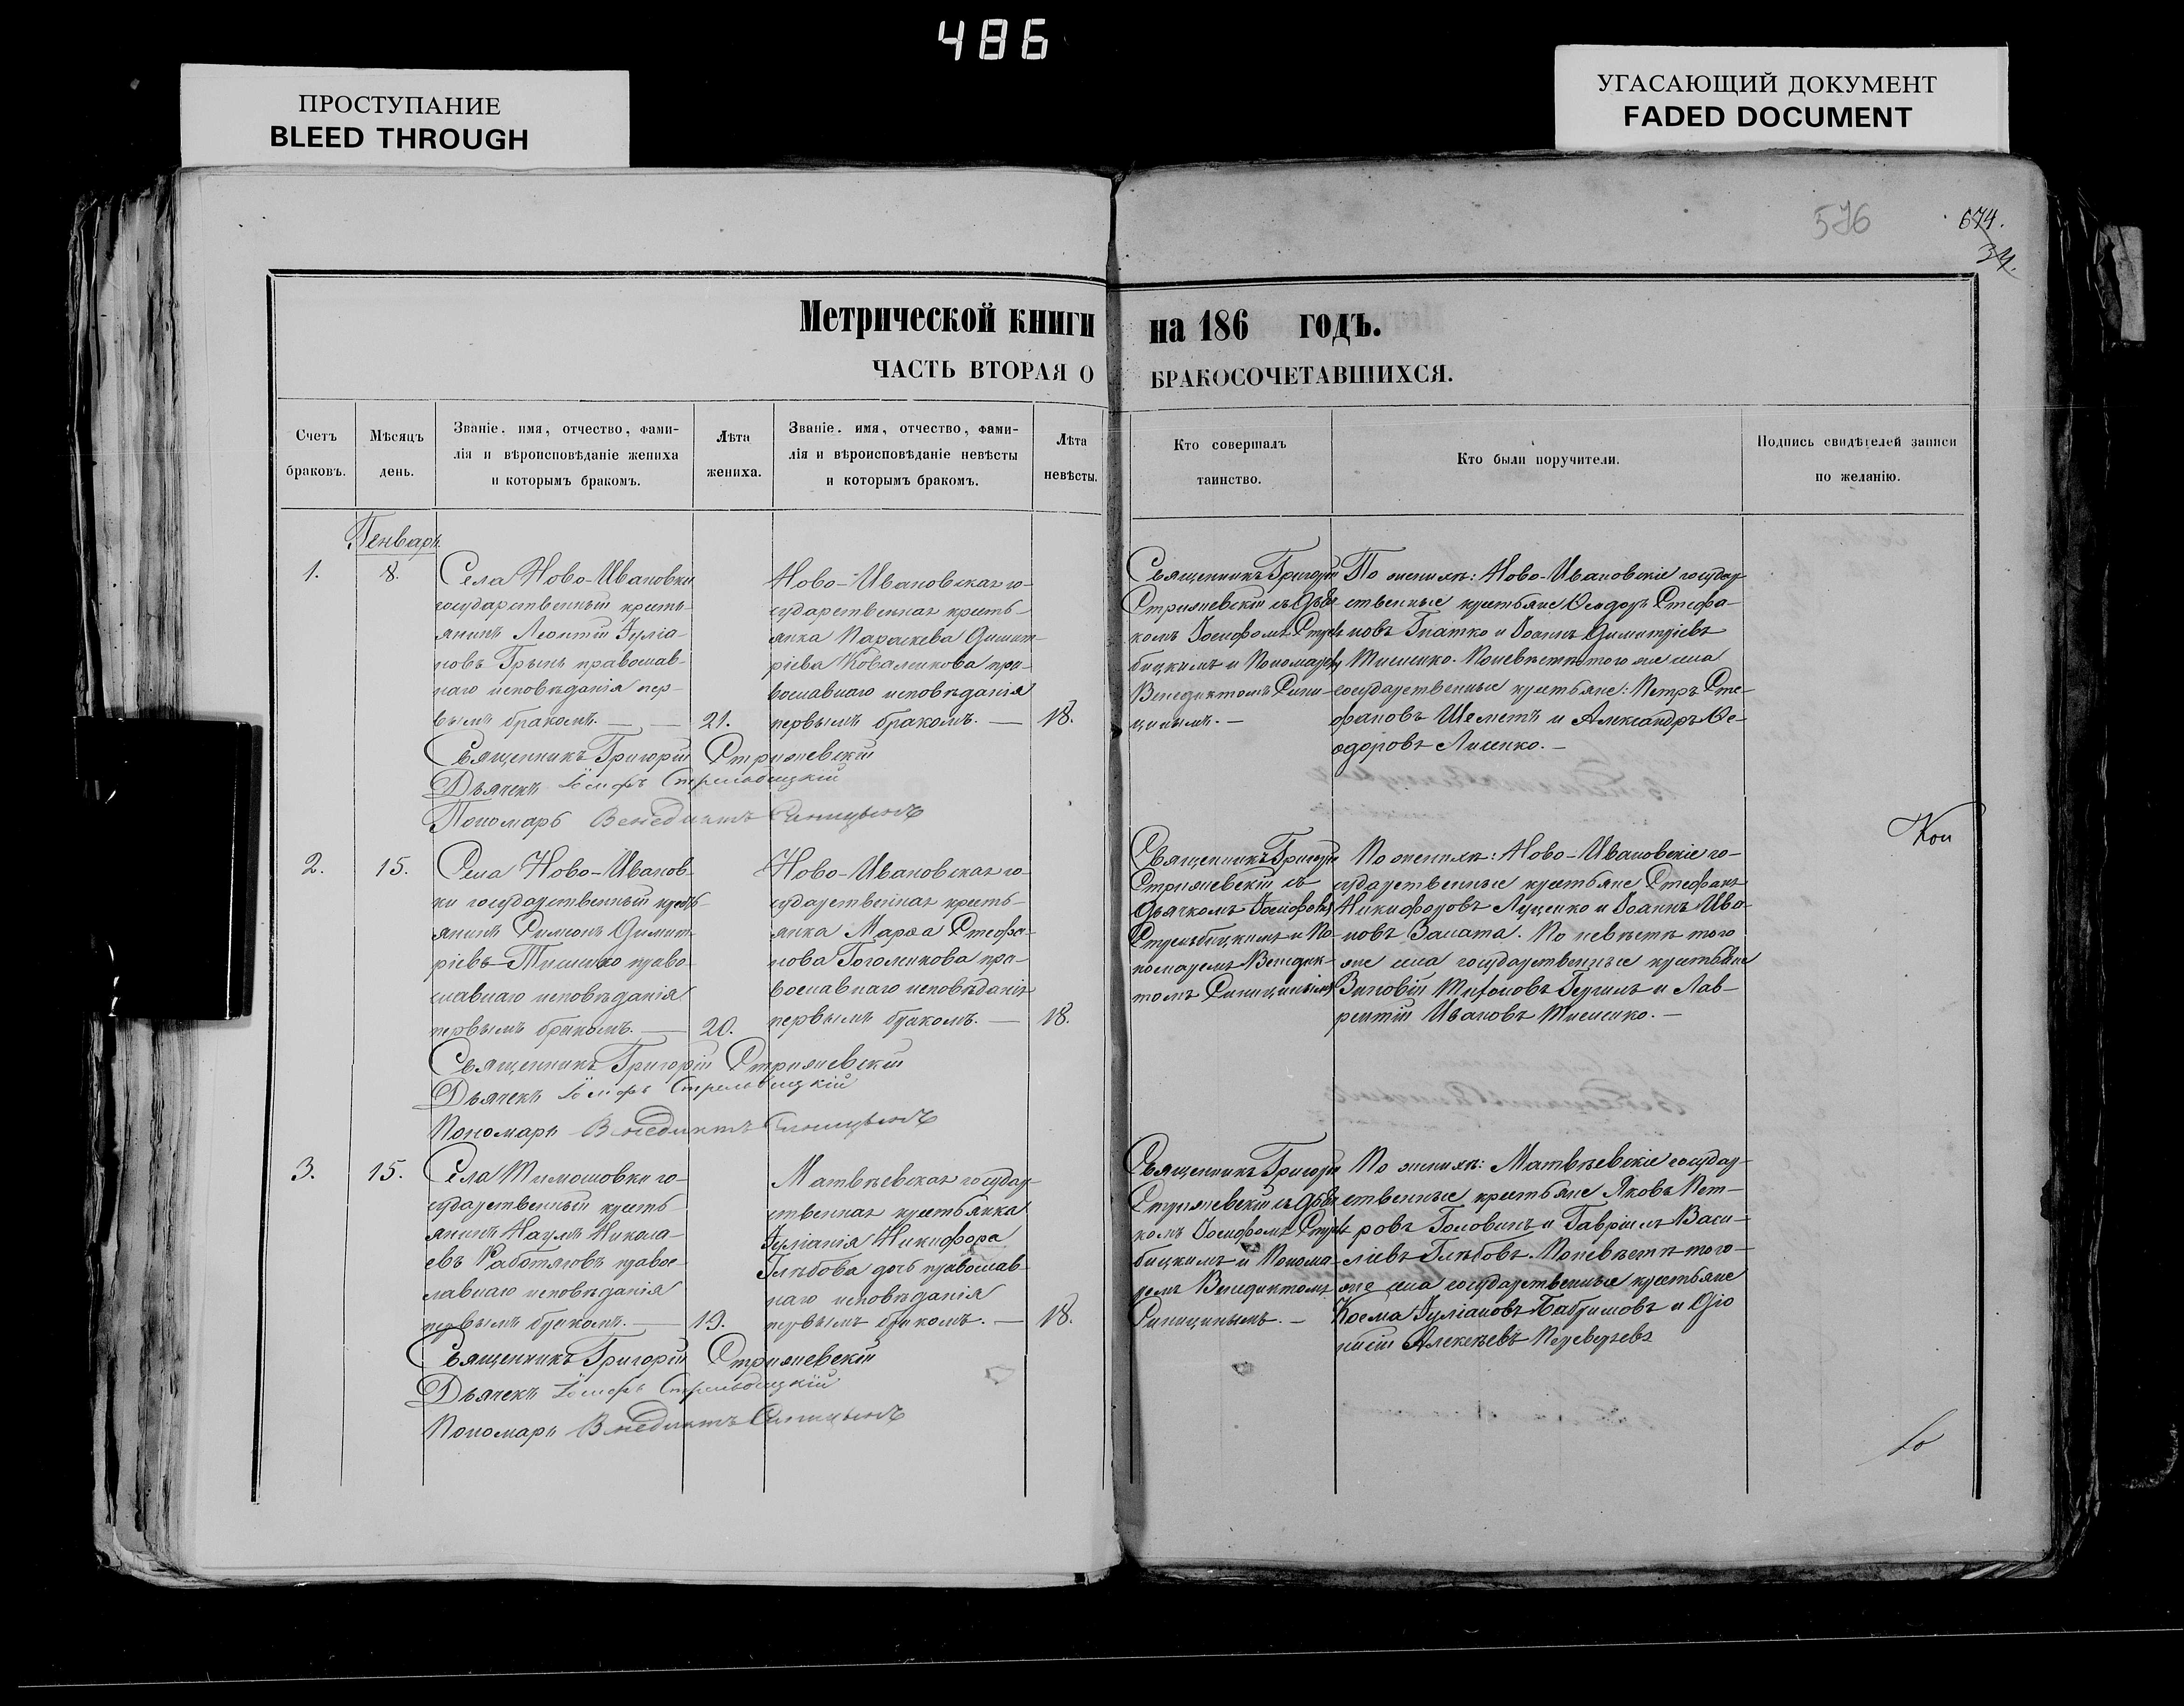 486
ПРОСТУПАНИЕ
BLEED THROUGH
УГАСАЮЩИЙ ДОКУМЕНТ
FADED DOCUMENT
576
674.
34.
Метрической книги на 186 годъ.
ЧАСТЬ ВТОРАЯ О БРАКОСОЧЕТАВШИХСЯ.
Счетъ
браковъ.
Мѣсяцъ
день.
Званіе, имя, отчество, фами-
лія и вѣроисповѣданіе жениха
и которымъ бракомъ.
Лѣта
жениха.
Званіе, имя, отчество, фами-
лія и вѣроисповѣданіе невѣсты
и которымъ бракомъ.
Лѣта
невѣсты.
Кто совершалъ
таинство.
Кто были поручители.
Подпись свидѣтелей записи
по желанію.
Генваря
1.
8.
Села Ново-Ивановки
государственный кресть-
янинъ Леонтій Іуліа-
новъ Грынь православ-
наго исповѣданія пер-
вымъ бракомъ. —
21.
Ново-Ивановская го-
сударственная кресть-
янка Параскева Димит-
ріева Коваленкова пра-
вославнаго исповѣданія
первымъ бракомъ. —
18.
Священникъ Григорій
Стрижевскій съ Дьяч-
комъ Іосифомъ Стрѣль-
бицкимъ и Пономаремъ
Венедиктомъ Сини-
цинымъ. —
По женихѣ: Ново-Ивановскіе государ-
ственные крестьяне Ѳеодоръ Стефа-
новъ Гнатко и Іоаннъ Димитріевъ
Тищенко. По невѣстѣ того же села
государственные крестьяне: Петръ Сте-
фановъ Шеметъ и Александръ Ѳе-
одоровъ Лисенко. —
Священникъ Григорій Стрижевскій
Дьячекъ Іосифъ Стрельбицкій
Пономарь Венедиктъ Синицынъ
Кон
2.
15.
Села Ново-Иванов-
ки государственный кресть-
янинъ Симеонъ Димит-
ріевъ Тищенко право-
славнаго исповѣданія
первымъ бракомъ. —
20.
Ново-Ивановская го-
сударственная кресть-
янка Марѳа Стефа-
нова Гоголенкова пра-
вославнаго исповѣданія
первымъ бракомъ. —
18.
Священникъ Григорій
Стрижевскій съ
Дьячкомъ Іосифомъ
Стрельбицкимъ и По-
номаремъ Венедик-
томъ Синицинымъ
По женихѣ: Ново-Ивановскіе го-
сударственные крестьяне Стефанъ
Никифоровъ Луценко и Іоаннъ Ива-
новъ Заната. По невѣстѣ того
же села государственные крестьяне
Зиновій
и Лав-
рентій Ивановъ Тищенко. —
Священникъ Григорій Стрижевскій
Дьячекъ Іосифъ Стрельбицкій
Пономарь Венедиктъ Синицынъ
3.
15.
Села Тимошовки го-
сударственный кресть-
янинъ Наумъ Никола-
евъ Работяговъ право-
славнаго исповѣданія
первымъ бракомъ. —
19.
Матвѣевская государ-
ственная крестьянка
Іуліанія Никифора
Глѣбова дочь православ-
наго исповѣданія
первымъ бракомъ. —
18.
Священникъ Григорій
Стрижевскій съ Дьяч-
комъ Іосифомъ Стрель-
бицкимъ и Понома-
ремъ Венедиктомъ
Синицинымъ. —
По женихѣ: Матвѣевскіе государ-
ственные крестьяне Яковъ Пет-
ровъ Головинъ и Гавріилъ Васи-
ліевъ Глѣбовъ. По невѣстѣ того-
же села государственные крестьяне
Косма Іуліановъ и Діо-
нисій Алексѣевъ Переверзевъ
Священникъ Григорій Стрижевскій
Дьячекъ Іосифъ Стрельбицкій
Пономарь Венедиктъ Синицынъ